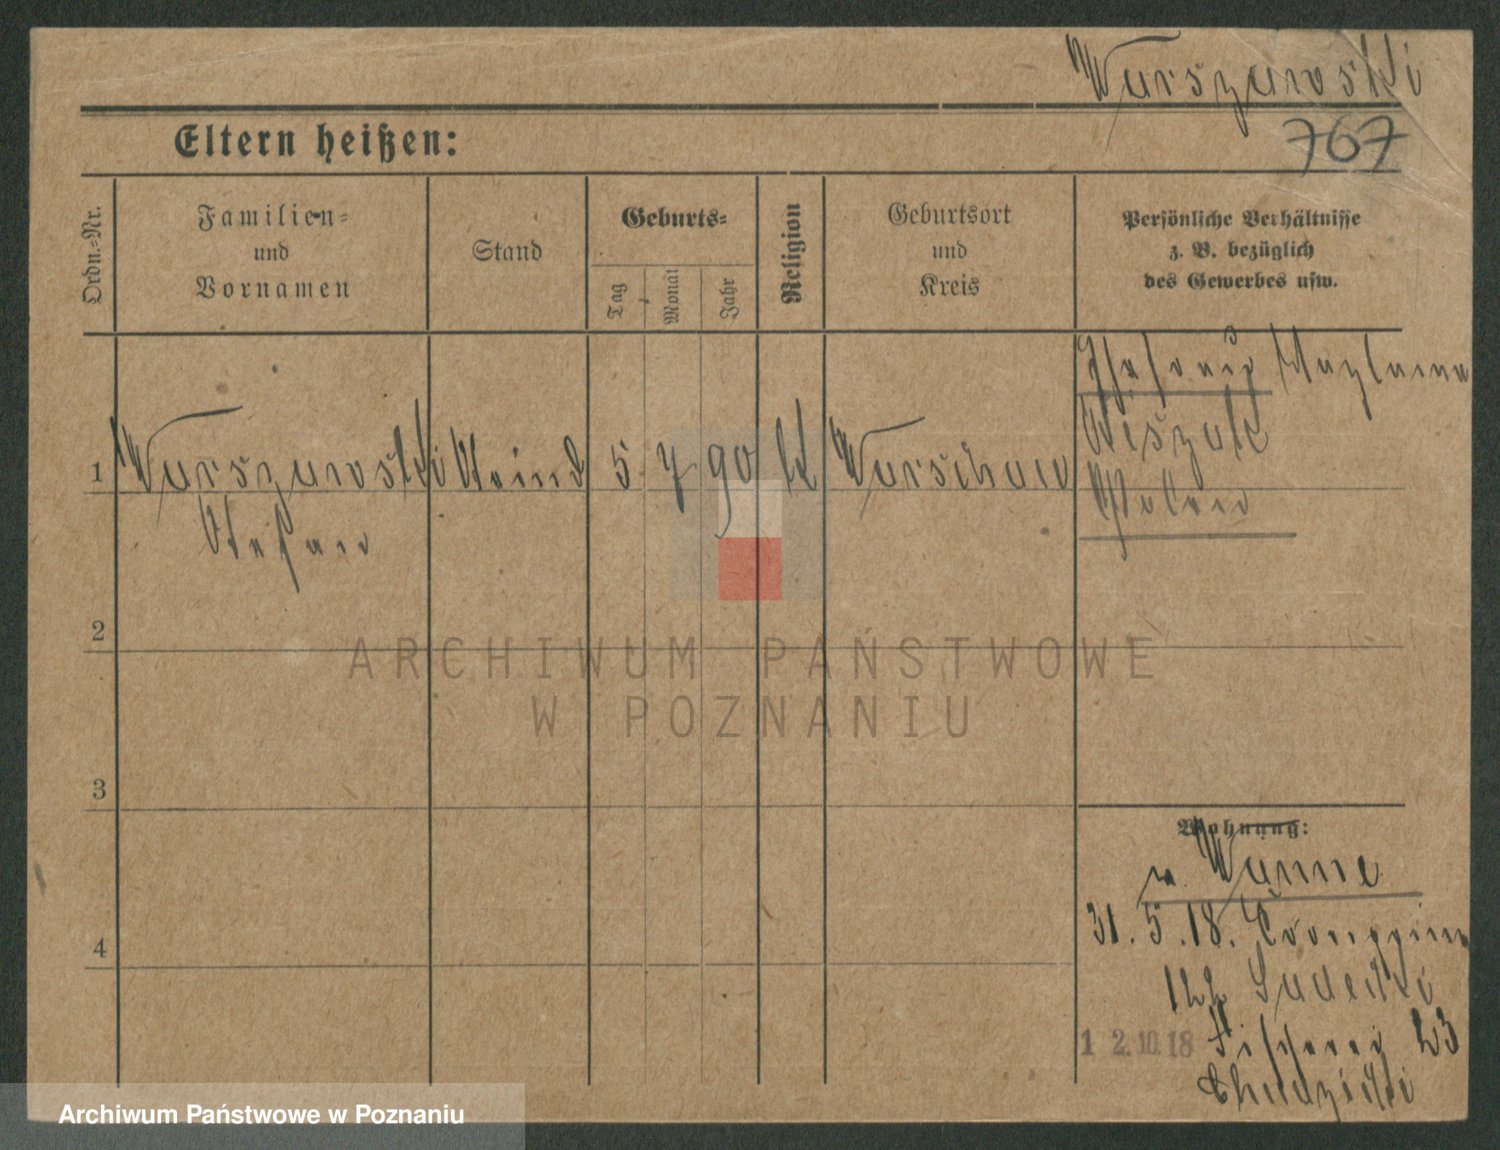 Warszawski
767
Eltern heißen:
Ordn.-Nr.
Familien-
und
Vornamen
Stand
Geburts-
Tag
Monat
Jahr
Religion
Geburtsort
und
Kreis
Persönliche Verhältnisse
z. B. bezüglich
des Gewerbes usw.
1
Warszawski
Stefan
5
7
90
K
Warschau
Polen
2
3
4
Wohnung:
v. Wanne
31. 5. 18.
122
12.10.18
Fischerei 23
ARCHIWUM PAŃSTWOWE
W POZNANIU
Archiwum Państwowe w Poznaniu